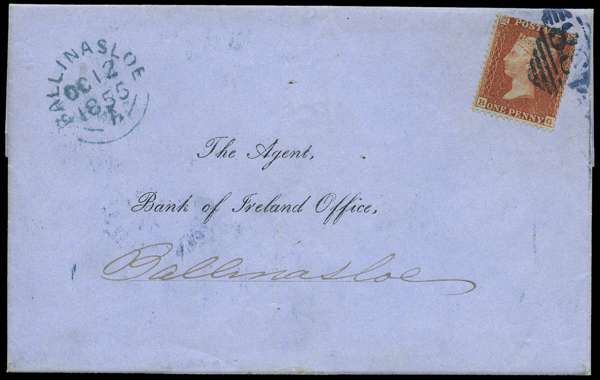 BALLINASLOE
OC 12
1855
POST
ONE PENNY
The Agent,
Bank of Ireland Office,
Ballinasloe